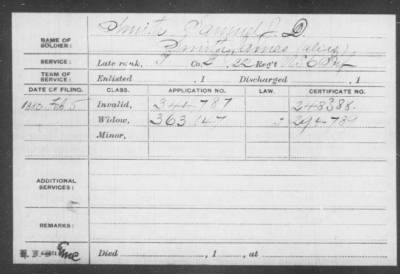 NAME OF SOLDIER: Smith, Samuel J. D
James (alias),
SERVICE: Late rank, Co. , 22 Reg't
TERM OF SERVICE: Enlisted , 1 Discharged , 1
DATE OF FILING. CLASS. APPLICATION NO. LAW. CERTIFICATE NO.
Feb 5 Invalid, 344787 248388
Widow, 363147 294789
Minor,
ADDITIONAL SERVICES:
REMARKS:
Died , 1 , at